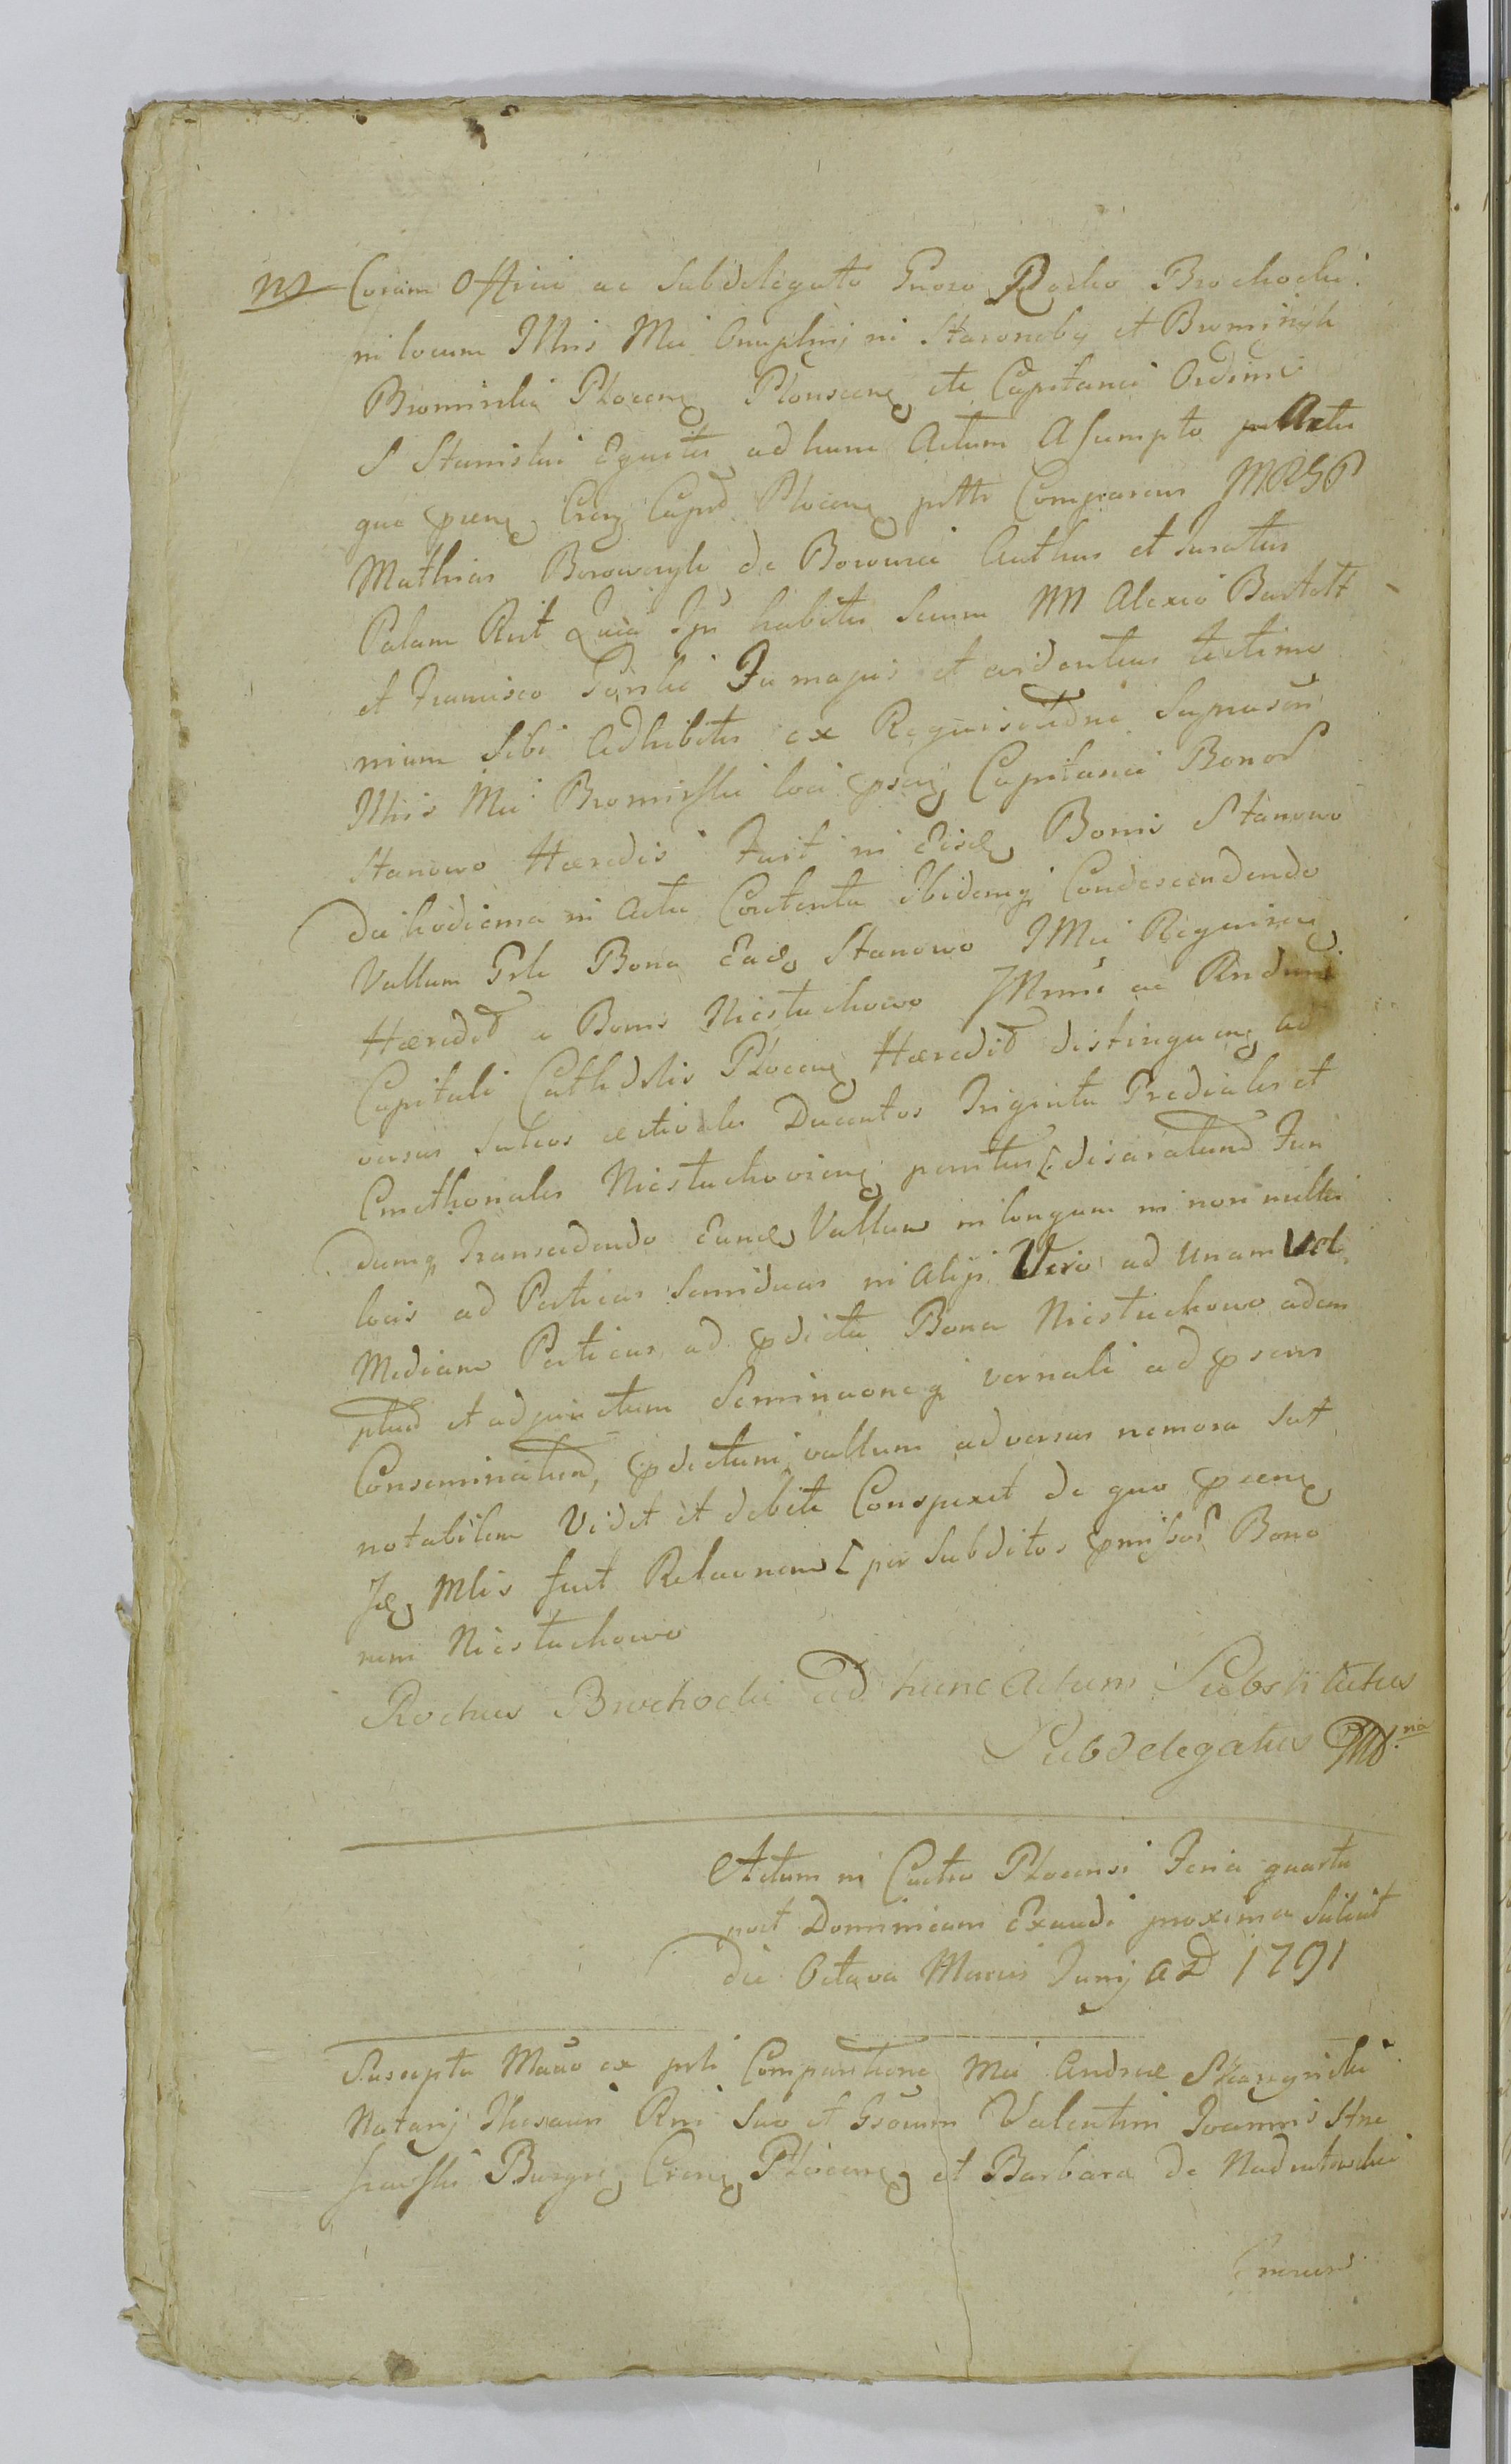 Coram Officio ac Subdelegato Gnoso Rocho Brochocki
in locum Illris Mci Onuphrij in Staroreby et Brominych
Bromirski Plocens Plonscens etc Capitanei Ordinis
S Stanislai Equitis ad hunc Actum Assumpto
que Crens Capnd Plocens prtr Comparens MRGP
Mathias Borowczyk de Borowice Authus et Juratus
Palam Rcit Quia Ipse habitis Secum NN Alexio Bartolt
et Francisco Gorski In majus et evidentius testimo
nium Sibi Adhibitis ex Requisitione Suprascri
Illris Mci Bromirski loci Capitanei Bonor
Stanowo Hæredis Fuit in Eisd Bonis Stanowo
Die hodierna in Actu Contenta Ibidemq Condescendendo
Vallum Grle Bona Ead Stanowo IMci Requiren
Hæredit a Bonis Niestuchowo IMmi ac Rndmi
Capituli Cathdlis Plocens Hæredit distinguens ad
versus Sulcos æstivales Ducentos Triginta Prediales et
Cmethonales Niestuchoviens penitus disaratum Fun
dumq Transcedendo Eund Vallum in longum in non nullis
locis ad Perticas Semiduas in Alijs Vero ad Unam vel
Mediam Perticas ad pdicta Bona Niestuchowo adem
ptum et adjunctum Seminaoneq vernali ad psens
Conseminatum, pdictum vallum adversus nemora Sat
notabilem Vidit et debite Conspexit de quo
Id Mlis fecit Relaonem per Subditos pmissor Bono
rum Niestuchowo
Rochus Brochocki ad hunc Actum Substitutus
Subdelegatus
Actum in Castro Plocensi Feria quarta
post Dominicam Exaudi proxima Sciliet
Die Octava Mensis Junij AD 1791
Suscepta Mano ex prli Comparitione Mci Andreæ
Notarij Thesauri Rni Suo et Gsorum Valentini Joannis
Burgr Crens Plocens et Barbara de